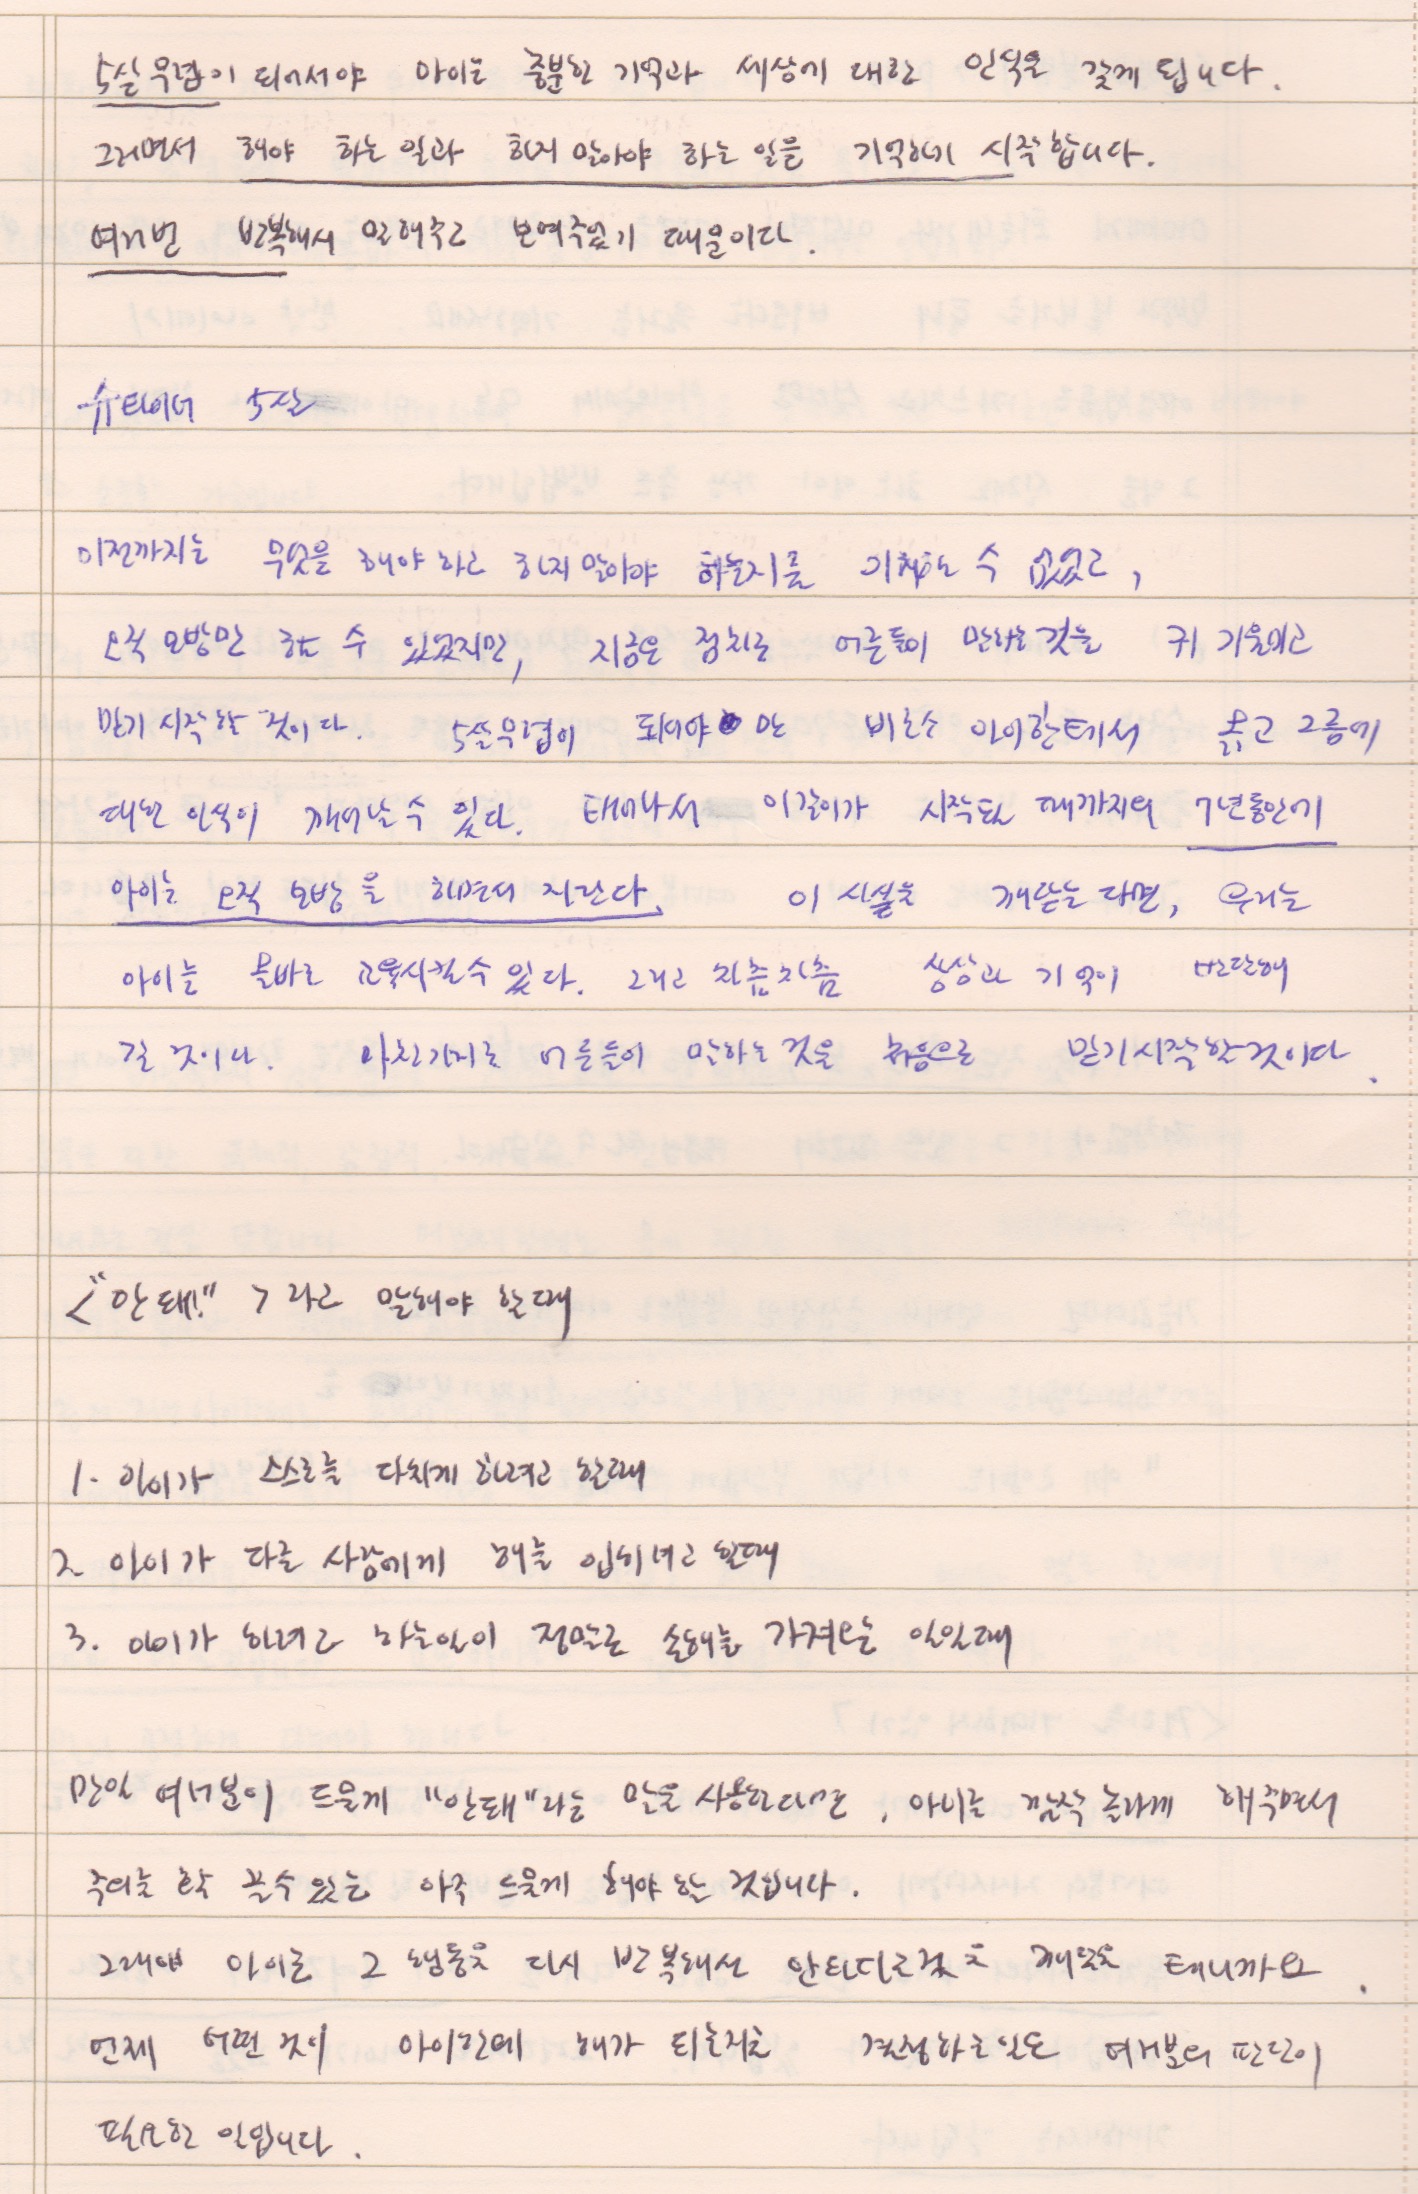 5살 무렵이 되어서야 아이는 충분한 기억과 세상에 대한 인식을 갖게 됩니다.
그러면서 해야 하는 일과 하지 말아야 하는 일을 기억하기 시작합니다.
여러번 반복해서 말해주고 보여주었기 때문이다.
슈타이너 5살
이전까지는 무엇을 해야 하고 하지 말아야 하는지를 기억할 수 없었고,
오직 모방만 할 수 있었지만, 지금은 점차로 어른들이 말하는 것을 귀 기울이고
믿기 시작할 것이다. 5살무렵이 되어야 만 비로소 아이한테서 옳고 그름에
대한 인식이 깨어날 수 있다. 태어나서 이갈이가 시작될 때까지의 7년동안에
아이는 오직 모방을 하면서 자란다. 이 사실을 깨닫는다면, 우리는
아이를 올바로 교육시킬 수 있다. 그리고 차츰차츰 상상과 기억이 발달해
갈 것이다. 마찬가지로 어른들이 말하는 것을 처음으로 믿기 시작할 것이다.
<"안돼!" > 라고 말해야 할때
1. 아이가 스스로를 다치게 하려고 할때
2. 아이가 다른 사람에게 해를 입히려고 할때
3. 아이가 하려고 하는일이 정말로 손해를 가져오는 일일때
만일 여러분이 드물게 "안돼"라는 말을 사용한다면, 아이를 깜짝 놀라게 해주면서
주의를 확 끌수 있는 아주 드물게 해야 할 것입니다.
그래야 아이는 그 행동을 다시 반복해선 안되다는것을 깨닫을 테니까요.
언제 어떤 것이 아이한테 해가 되는지를 결정하는일도 여러분의 판단이
필요한 일입니다.